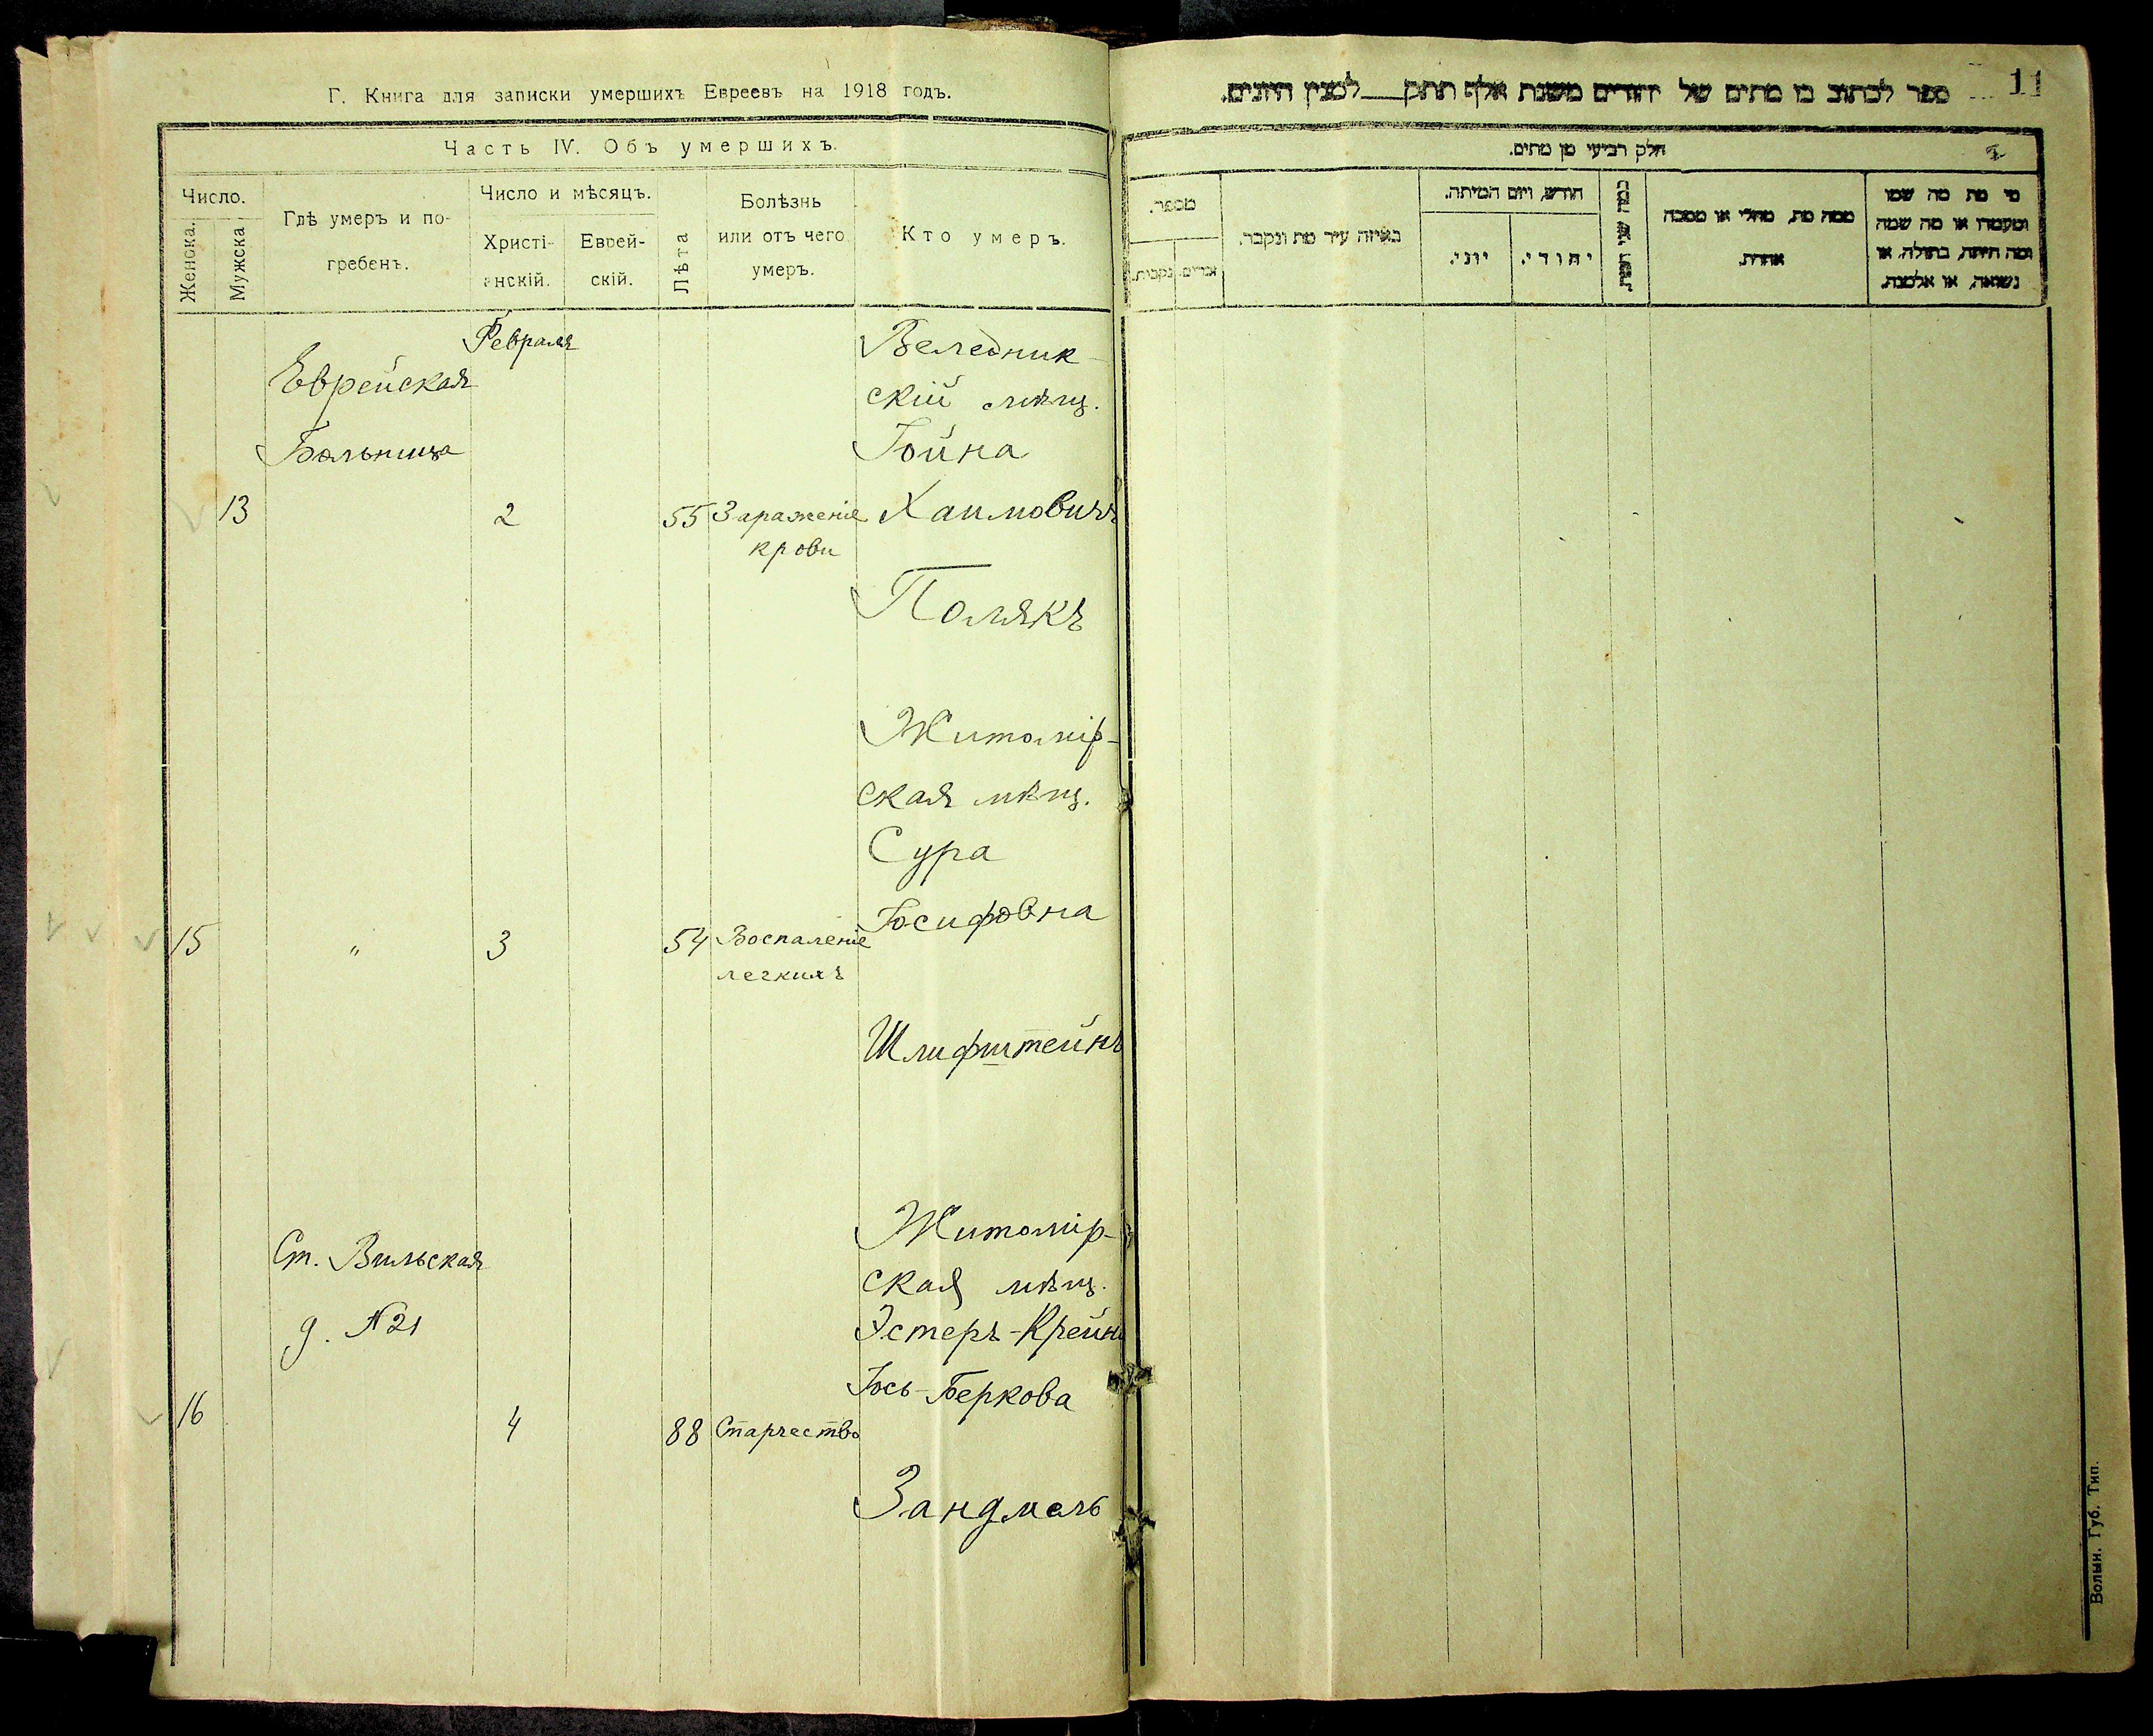 Г. Книга для записки умершихъ Евреевъ на 1918 годъ.
Часть IV. Объ умершихъ.
Число.
Женска.
Мужска
Гдѣ умеръ и по-
гребенъ.
Число и мѣсяцъ.
Христі-
анскій.
Еврей-
скій.
Лѣта
Болѣзнь
или отъ чего
умеръ.
Кто умеръ.
Февраля
Еврейская
Больница
13
2
55
Зараженіе
крови
Веледник-
скій мѣщ.
Іойна
Хаимовичъ
Полякъ
15
"
3
54
Воспаленіе
легкихъ
Житомір-
ская мѣщ.
Сура
Іосифовна
Шлифштейнъ
Ст. Вильская
д. № 21
16
4
88
Старчество
Житомір-
ская мѣщ.
Эстеръ-Крейн
Іось-Беркова
Зандмель
11
ספר לכתוב בו מתים של יהודים משנת אלף תתק___למנין היונים.
חלק רביעי מן מתים.
מספר.
זכרים
נקבות.
באיזה עיר מת ונקבר.
חודש, ויום המיתה.
יהודי.
יוני.
ממה מת, מחלי או מסבה
אחרת.
מי מת מה שמו
ומעמדו או מה שמה
ומה היתה, בתולה, או
נשואה, או אלמנה.
Волын. Губ. Тип.